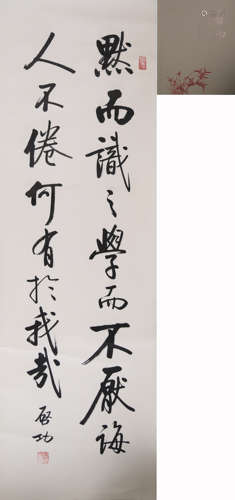 默而識之學而不厭誨
人不倦何有於我哉
啓功